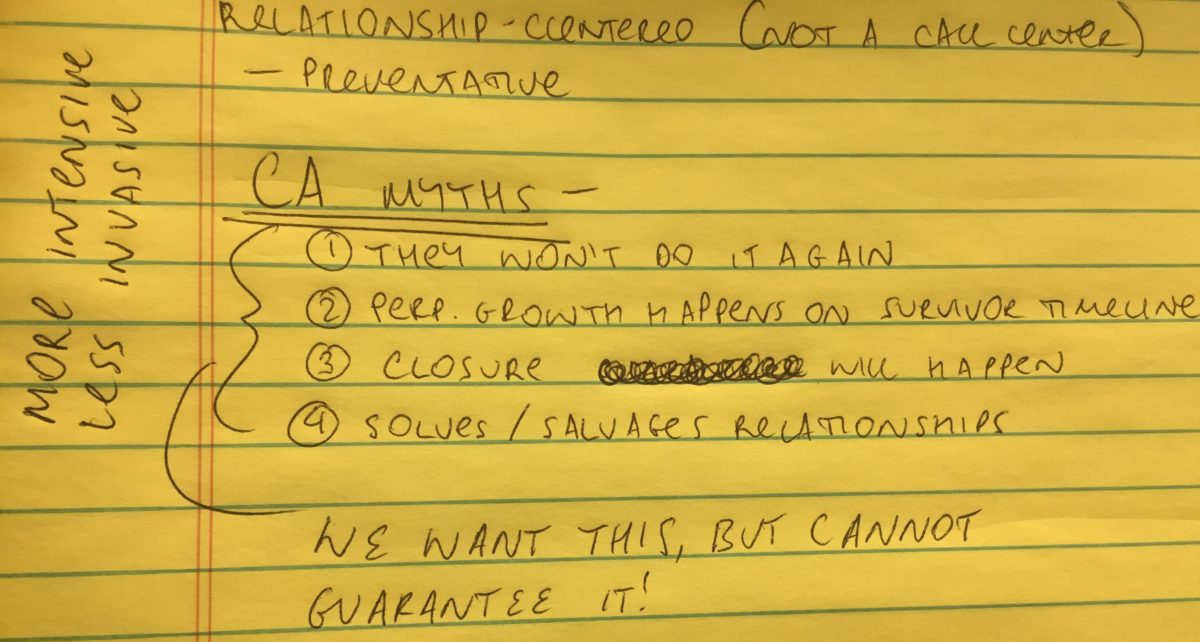 RELATIONSHIP-CCENTERED (NOT A CALL CENTER)
— PREVENTATIVE
MORE INTENSIVE
LESS INVASIVE
CA MYTHS —
① THEY WON'T DO IT AGAIN
② PERP. GROWTH HAPPENS ON SURVIVOR TIMELINE
③ CLOSURE WILL HAPPEN
④ SOLVES / SALVAGES RELATIONSHIPS
WE WANT THIS, BUT CANNOT
GUARANTEE IT!